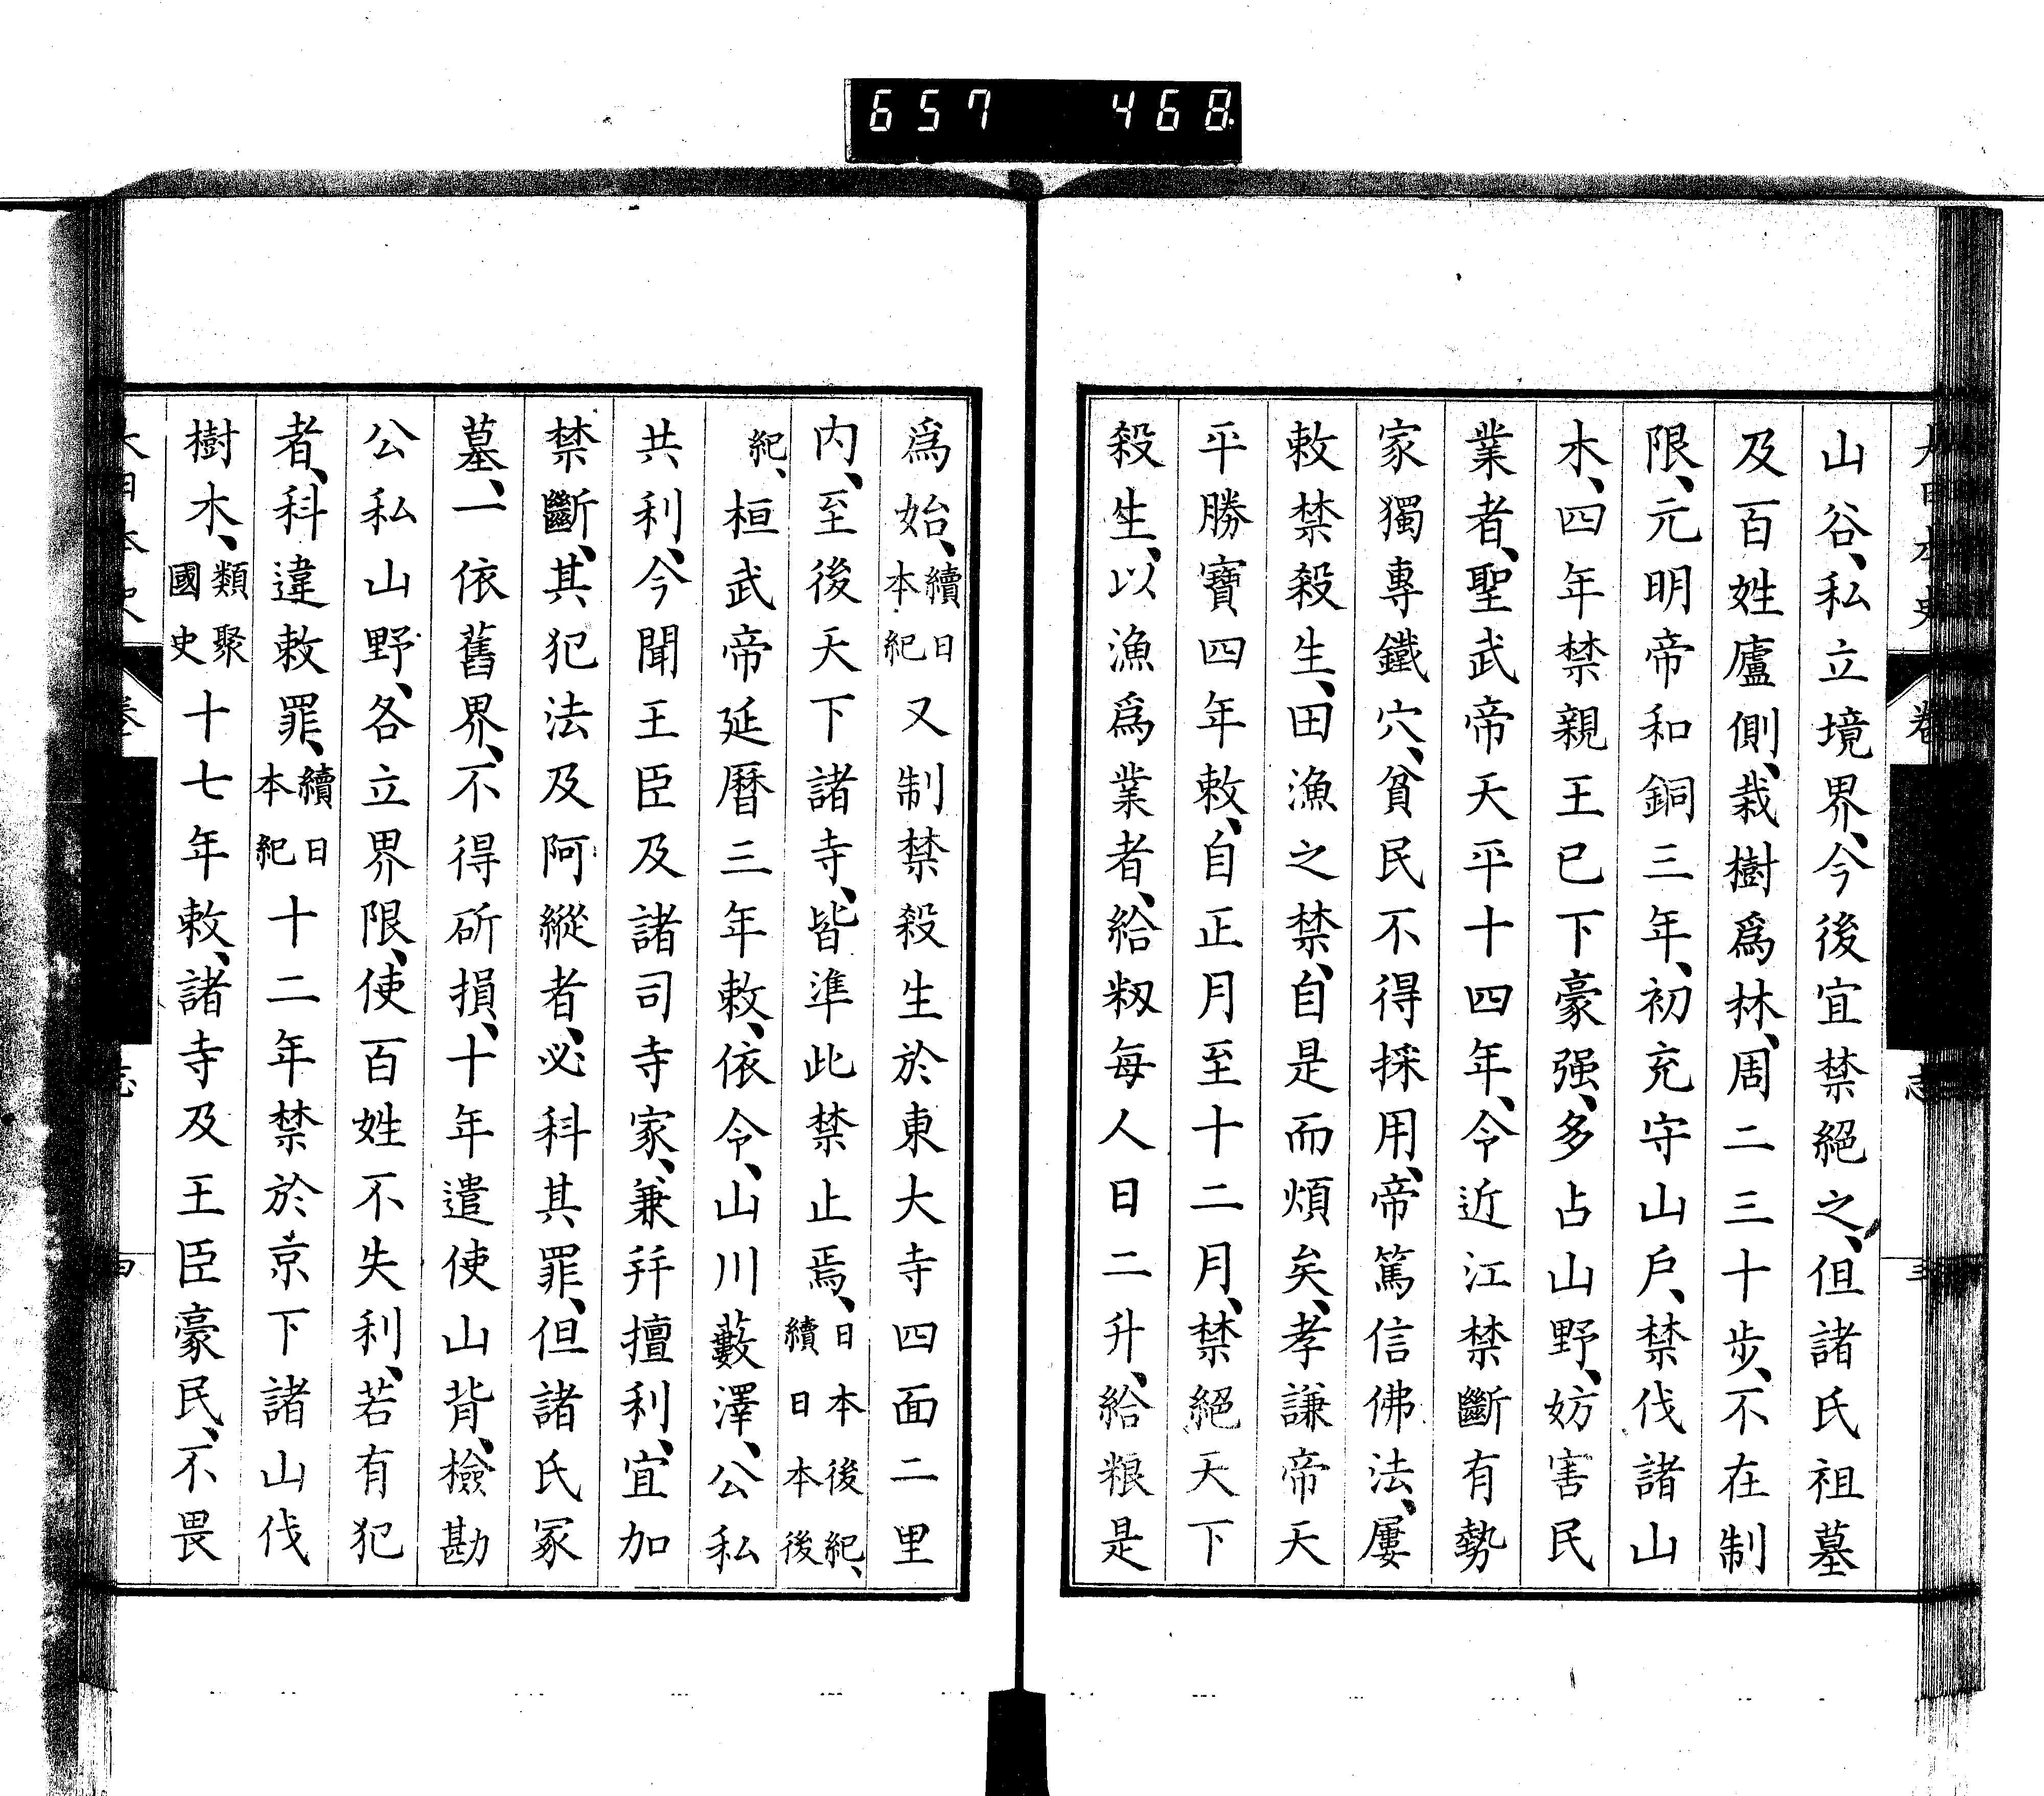 657 468
山谷、私立境界、今後宜禁絕之、但諸氏祖墓
及百姓廬側、栽樹爲林、周二三十步、不在制
限、元明帝和銅三年、初充守山戶、禁伐諸山
木、四年禁親王已下豪强、多占山野、妨害民
業者、聖武帝天平十四年、令近江禁斷有勢
家獨專鐵穴、貧民不得採用、帝篤信佛法、屢
敕禁殺生、田漁之禁、自是而煩矣、孝謙帝天
平勝寶四年敕、自正月至十二月、禁絕天下
殺生、以漁爲業者、給籾每人日二升、給粮是
爲始、續日本紀又制禁殺生於東大寺四面二里
內、至後天下諸寺、皆準此禁止焉、日本後紀、續日本後
紀、桓武帝延曆三年敕、依令、山川藪澤、公私
共利、今聞王臣及諸司寺家、兼幷擅利、宜加
禁斷、其犯法及阿縱者、必科其罪、但諸氏冢
墓、一依舊界、不得斫損、十年遣使山背、檢勘
公私山野、各立界限、使百姓不失利、若有犯
者、科違敕罪、續日本紀十二年禁於京下諸山伐
樹木、類聚國史十七年敕、諸寺及王臣豪民、不畏